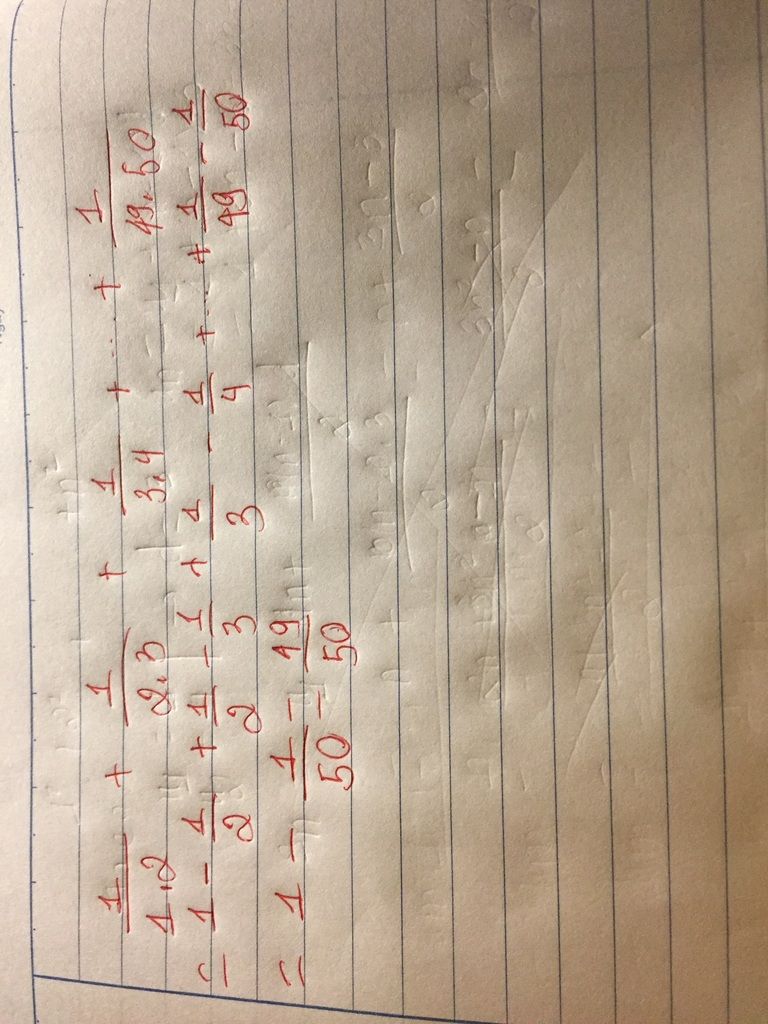 1/1.2 + 1/2.3 + 1/3.4 + ... + 1/49.50
= 1 - 1/2 + 1/2 - 1/3 + 1/3 - 1/4 + ... + 1/49 - 1/50
= 1 - 1/50 = 49/50